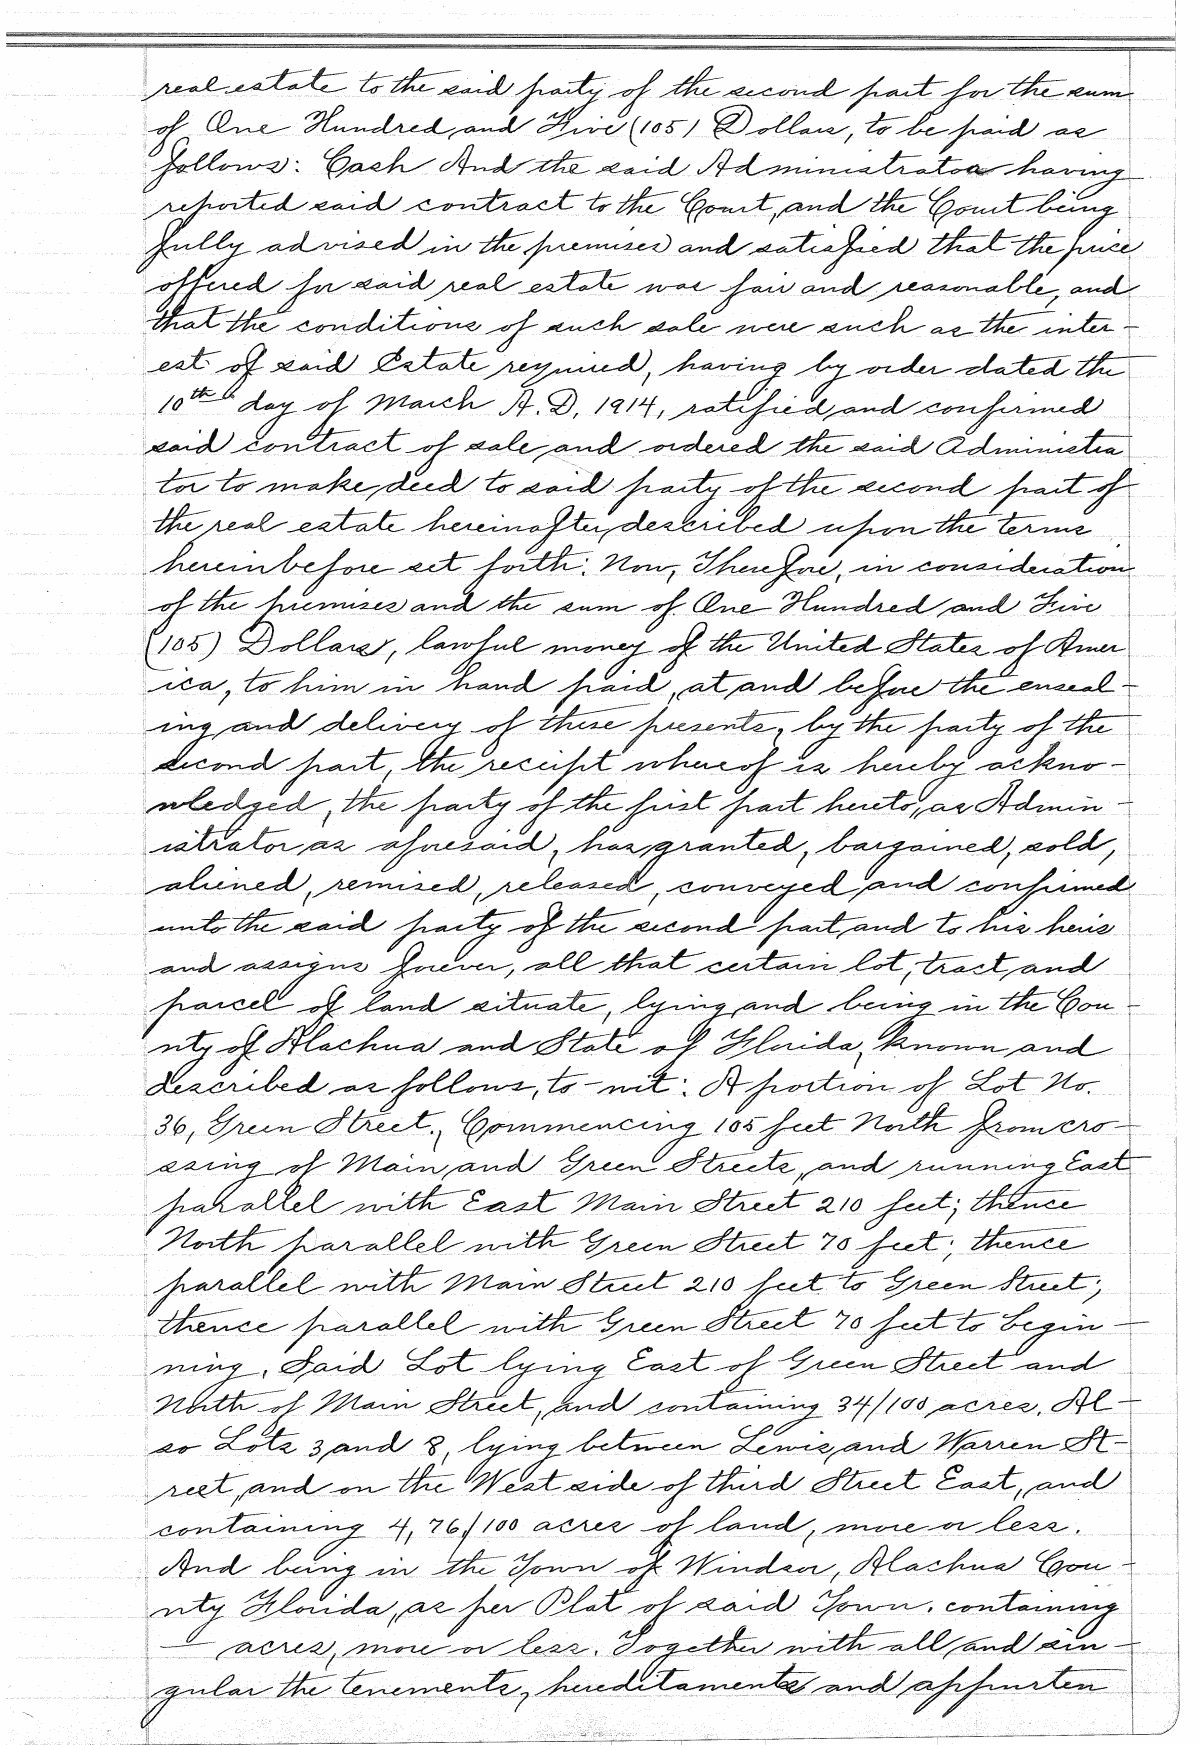 real estate to the said party of the second part for the sum
of One Hundred and Five (105) Dollars, to be paid as
follows: Cash And the said Administrator having
reported said contract to the Court, and the Court being
fully advised in the premises and satisfied that the price
offered for said real estate was fair and reasonable, and
that the conditions of such sale were such as the inter-
est of said Estate required, having by order dated the
10th day of March A.D. 1914, ratified and confirmed
said contract of sale and ordered the said Administra
tor to make deed to said party of the second part of
the real estate hereinafter described upon the terms
hereinbefore set forth. Now, Therefore, in consideration
of the premises and the sum of One Hundred and Five
(105) Dollars, lawful money of the United States of Amer
ica, to him in hand paid, at and before the enseal-
ing and delivery of these presents, by the party of the
second part, the receipt whereof is hereby ackno-
wledged, the party of the first part hereto, as Admin-
istrator as aforesaid, has granted, bargained, sold,
aliened, remised, released, conveyed and confirmed
unto the said party of the second part and to his heirs
and assigns forever, all that certain lot, tract, and
parcel of land situate, lying and being in the Cou-
nty of Alachua and State of Florida, known and
described as follows, to-wit: A portion of Lot No.
36, Green Street., Commencing 105 feet North from cro-
ssing of Main and Green Streets, and running East
parallel with East Main Street 210 feet; thence
North parallel with Green Street 70 feet; thence
parallel with Main Street 210 feet to Green Street;
thence parallel with Green Street 70 feet to begin-
ning. Said Lot lying East of Green Street and
North of Main Street, and containing 34/100 acres. Al-
so Lots 3 and 8, lying between Lewis and Warren St-
reet, and on the West side of third Street East, and
containing 4, 76/100 acres of land, more or less.
And being in the Town of Windsor, Alachua Cou-
nty Florida, as per Plat of said Town. containing
— acres, more or less. Together with all and sin-
gular the tenements, hereditaments and appurten